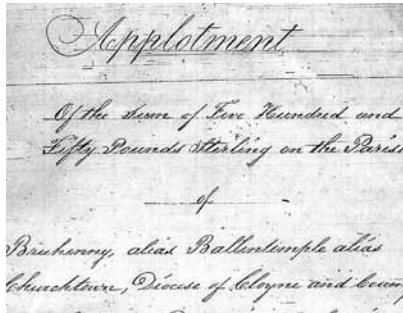 Applotment
Of the Sum of Five Hundred and
Fifty Pounds Sterling on the Paris
of
Bruhenny, alias Ballintemple alias
Churchtown, Diocese of Cloyne and Coun